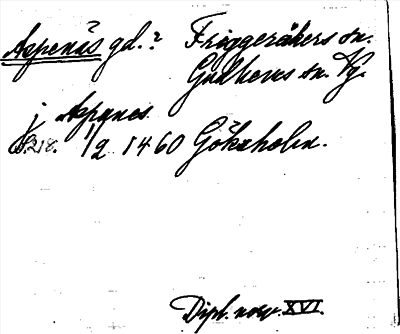 Aspenäs gd.? Friggeråkers sn.
Gudhems sn. Vg.
j Aspenes
S. 218. 1/2 1460 Gökxholm.
Dipl. norv. XVI.